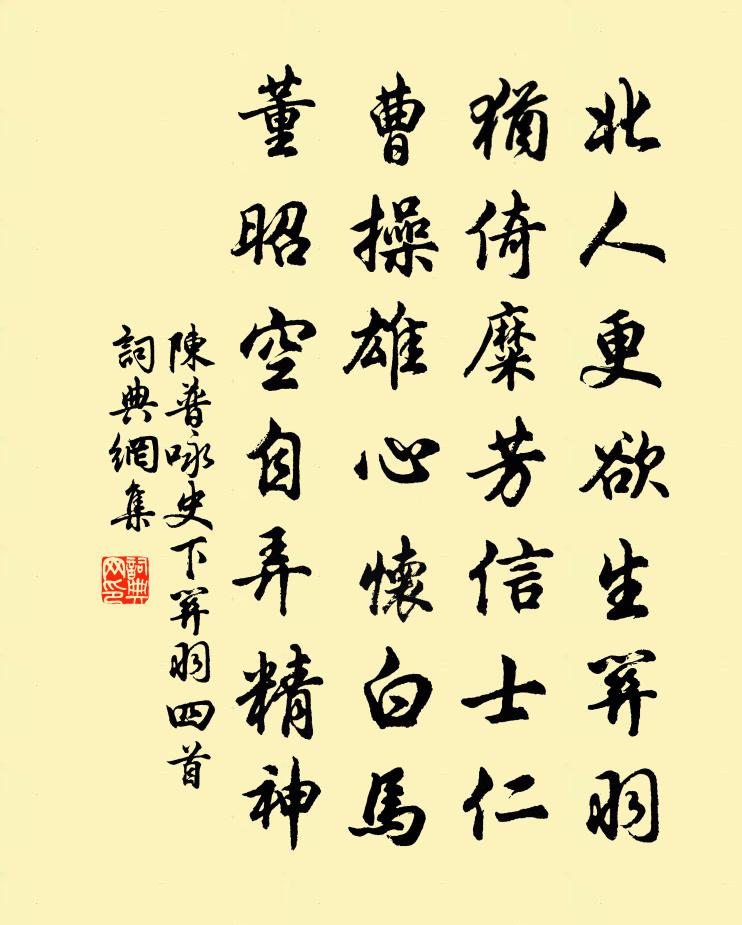 北人更欲生關羽
猶倚糜芳信士仁
曹操雄心懷白馬
董昭空自弄精神
陳普咏史下關羽四首
詞典網集
詞典网印